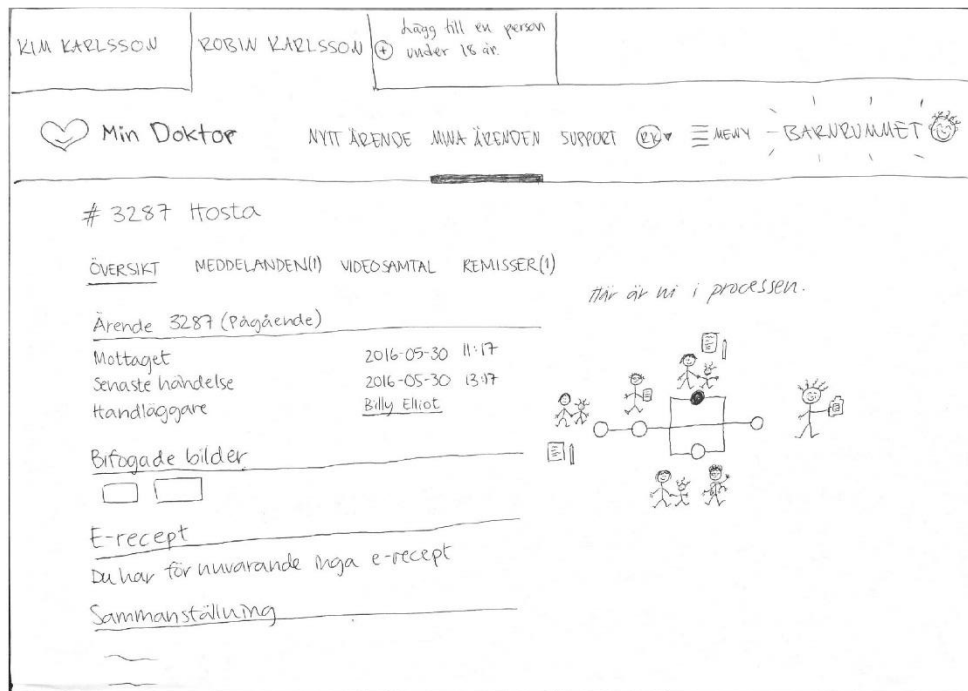 KIM KARLSSON
ROBIN KARLSSON
Lägg till en person
+ under 18 år.
Min Doktor
NYTT ÄRENDE MINA ÄRENDEN SUPPORT RK MENY BARNRUMMET
# 3287 Hosta
ÖVERSIKT MEDDELANDEN(1) VIDEOSAMTAL REMISSER(1)
Här är ni i processen.
Ärende 3287 (Pågående)
Mottaget 2016-05-30 11:17
Senaste händelse 2016-05-30 13:17
Handläggare Billy Elliot
Bifogade bilder
E-recept
Du har för nuvarande inga e-recept
Sammanställning